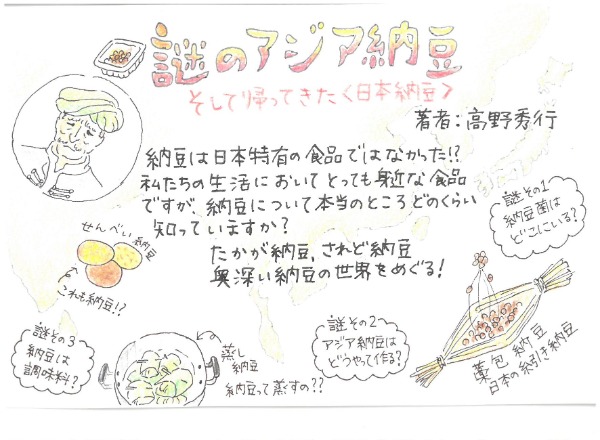 謎のアジア納豆
そして帰ってきた〈日本納豆〉
著者：高野秀行
納豆は日本特有の食品ではなかった!?
私たちの生活においてとっても身近な食品
ですが、納豆について本当のところどのくらい
知っていますか？
たかが納豆、されど納豆
奥深い納豆の世界をめぐる！
謎その1
納豆菌は
どこにいる？
せんべい納豆
これも納豆!?
謎その3
納豆は
調味料？
蒸し
納豆
納豆って蒸すの??
謎その2
アジア納豆は
どうやって作る？
藁包納豆
日本の糸引き納豆